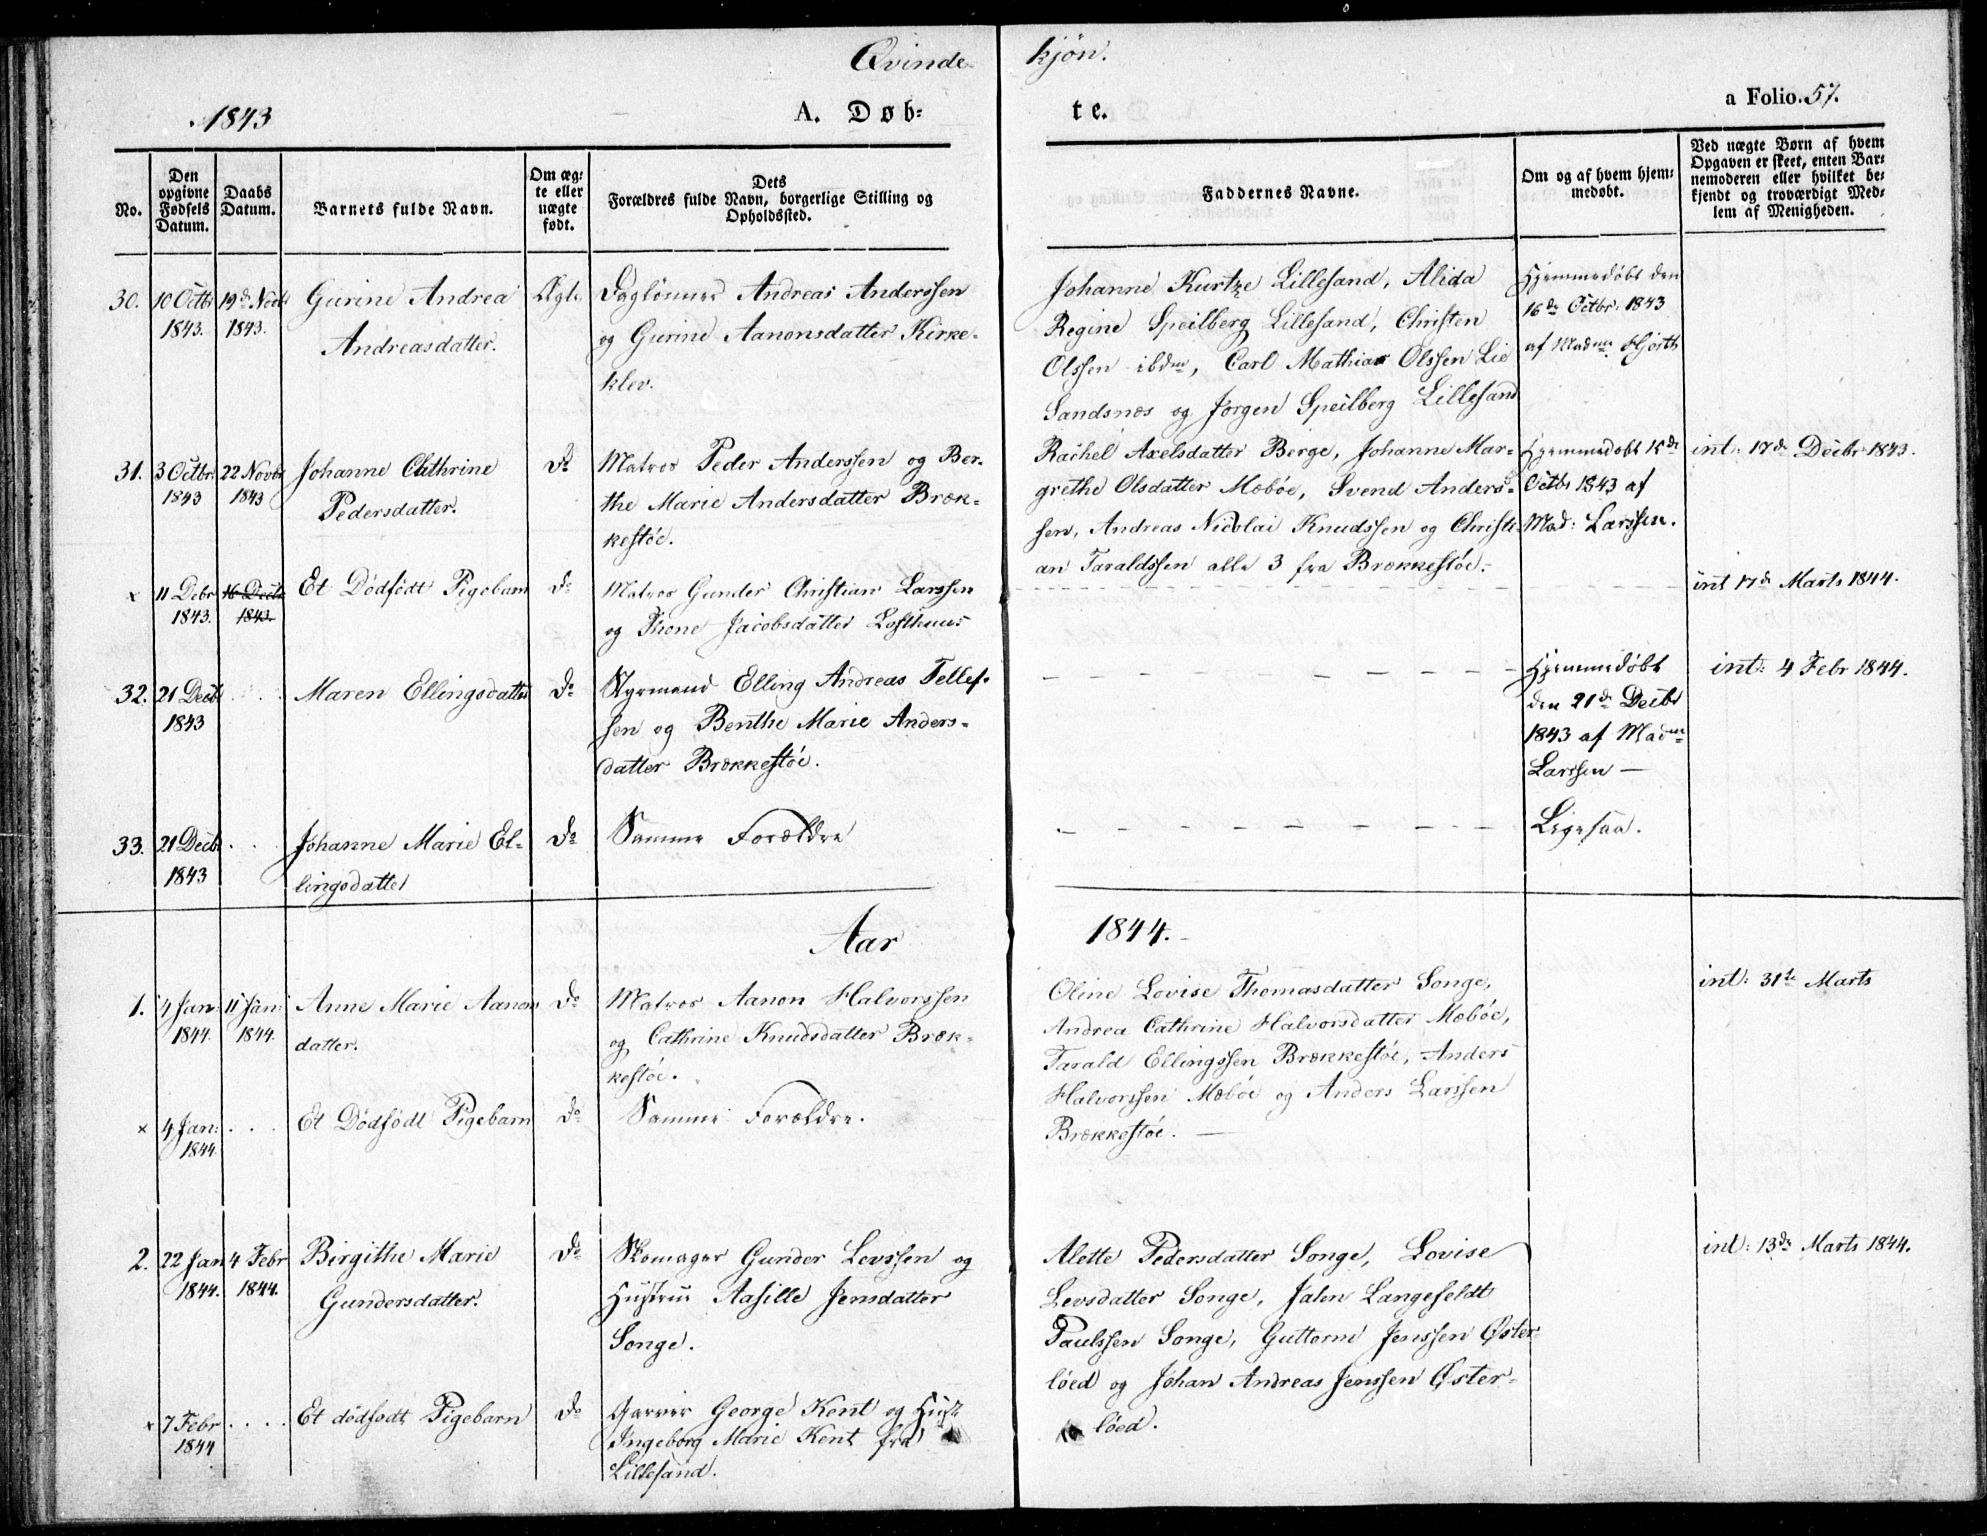 Qvinde-kjön.
1843
A. Døbte.
a Folio. 57.
No.
Den opgivne Fødsels Datum.
Daabs Datum.
Barnets fulde Navn.
Om ægte eller uægte født.
Dets Forældres fulde Navn, borgerlige Stilling og Opholdssted.
Faddernes Navne.
Om og af hvem hjemmedøbt.
Ved uægte Børn af hvem Opgaven er skeet, enten Barnemoderen eller hvilket bekjendt og troværdigt Medlem af Menigheden.
30.
10 Octbr
1843.
19de Novbr
1843.
Gurine Andrea
Andreasdatter.
Ægte
Daglönner Andreas Anderssen
og Gurine Aanonsdatter Kirke-
klev.
Johanne Kurtze Lillesand, Alida
Regine Speilberg Lillesand, Christen
Olssen ibdm, Carl Mathias Olssen Lie
Sandsnæs og Jørgen Speilberg Lillesand
Hjemmedøbt den
16de Octbr. 1843
af Madm Hjorth
31.
3 Octbr
1843
22 Novbr
1843
Johanne Cathrine
Pedersdatter.
Do
Matros Peder Anderssen og Ber-
the Marie Andersdatter Bræk-
kestöe.
Rachel Axelsdatter Berge, Johanne Mar-
grethe Olsdatter Mæböe, Svend Anders-
sen, Andreas Nicolai Knudssen og Christi-
an Taraldssen alle 3 fra Brækkestöe.
Hjemmedøbt 15de
Octbr 1843 af
Mad: Larssen.
int: 17de Decbr 1843.
x
11 Debr
1843.
16 Decbr
1843.
Et Dödfödt Pigebarn
Do
Matros Gunder Christian Larssen
og Thone Jacobsdatter Lofthuus
int 17de Marts 1844.
32.
21 Decbr
1843
Maren Ellingsdatter
Do
Styrmand Elling Andreas Tellef-
sen og Benthe Marie Anders-
datter Brækkestöe.
Hjemmedøbt
den 21de Decbr
1843 af Madm
Larssen —
int: 4 Febr 1844.
33.
21 Decbr
1843
Johanne Marie El-
lingsdatter
Do
Samme Forældre
Ligesaa.
Aar 1844.
1.
4 Jan:
1844.
11 Jan:
1844.
Anne Marie Aanons
datter.
Do
Matros Aanon Halvorssen
og Cathrine Knudsdatter Bræk-
kestöe.
Oline Lovise Thomasdatter Songe,
Andrea Cathrine Halvorsdatter Mæböe,
Tarald Ellingssen Brækkestöe, Anders
Halvorssen Mæböe og Anders Larssen
Brækkestöe.
int: 31te Marts
x
4 Jan:
1844.
Et Dödfödt Pigebarn
Do
Samme Forældre.
2.
22 Jan
1844.
4 Febr
1844.
Birgithe Marie
Gundersdatter.
Do
Skomager Gunder Levssen og
Hustrue Aasille Jensdatter
Songe.
Alette Pedersdatter Songe, Lovise
Levsdatter Songe, Jalen Langefeldt
Paulssen Songe, Guttorm Jenssen Öster-
löed og Johan Andreas Jenssen Öster-
löed.
int: 13de Marts 1844.
x
7 Febr
1844
Et dödfödt Pigebarn
Do
Garver George Kent og Hust
Ingeborg Marie Kent fra
Lillesand.